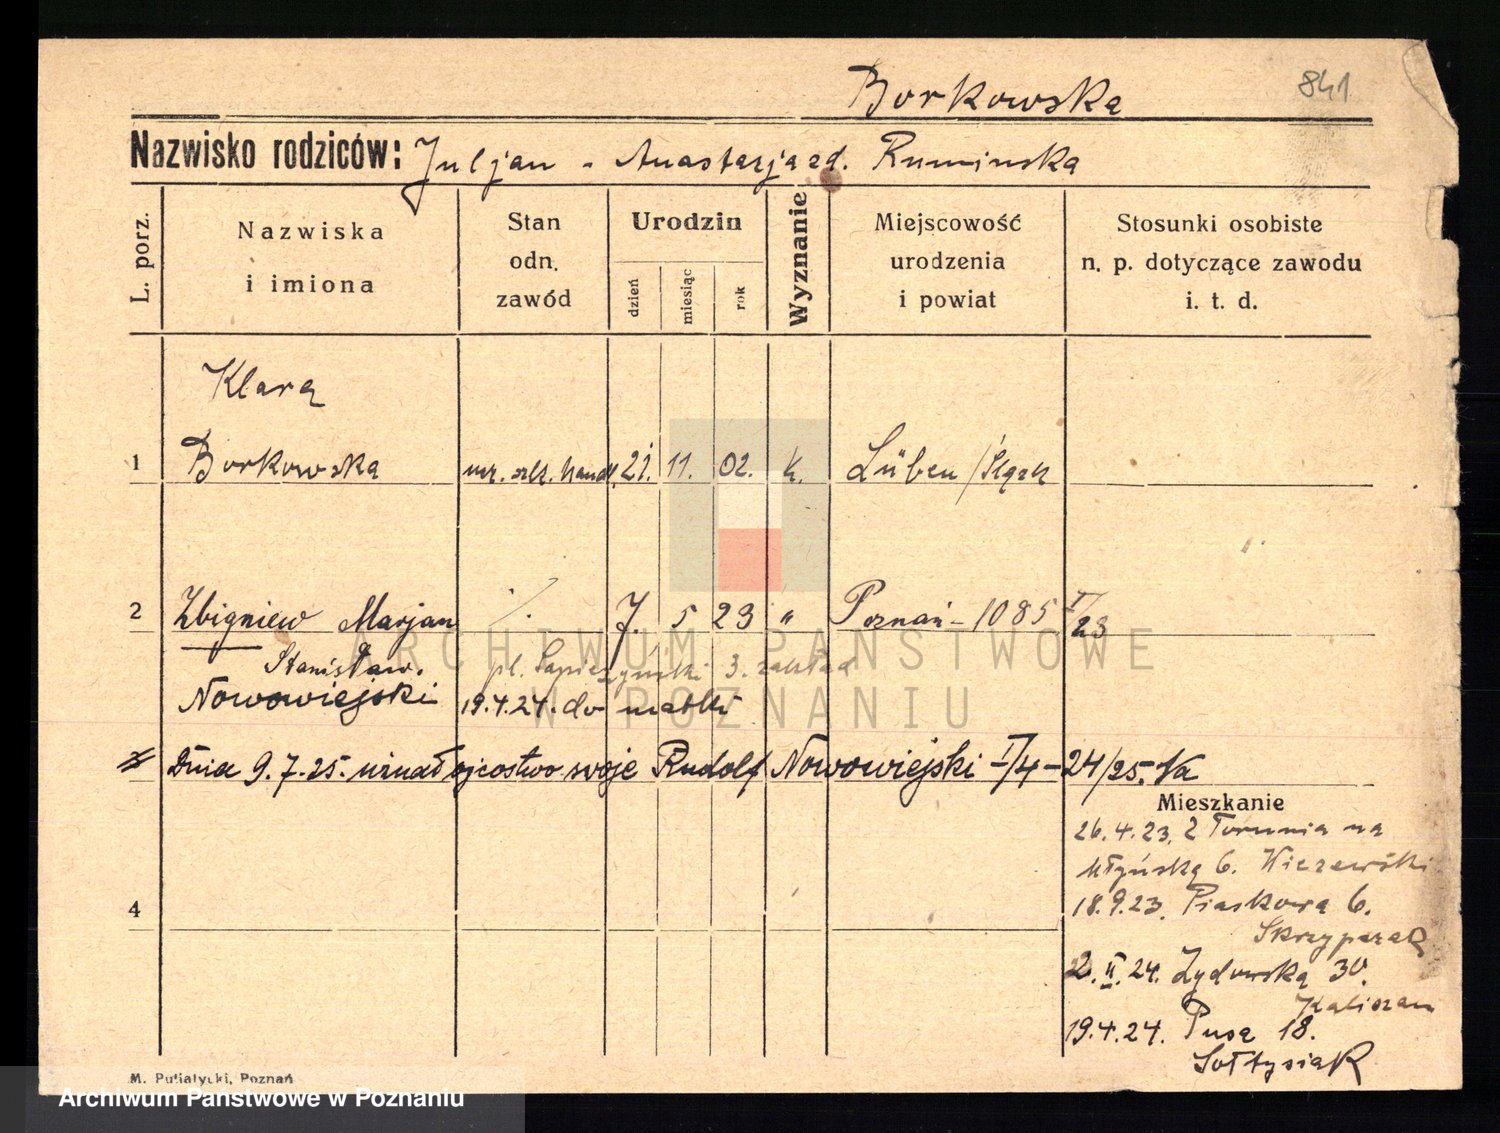 Borkowska 841
Nazwisko rodziców: Juljan - Anastazja zd. Rumińska
L. porz.
Nazwiska i imiona
Stan odn. zawód
Urodzin
dzień
miesiąc
rok
Wyznanie
Miejscowość urodzenia i powiat
Stosunki osobiste n. p. dotyczące zawodu i. t. d.
Klara
1 Borkowska 21. 11. 02. k. Lüben /Śląsk
2 Zbigniew Marjan 7. 5 23 " Poznań - 1085 I/23
Stanisław. pl. Sapieżyński 3. zakład
Nowowiejski 19.4.24. do matki
Dnia 9.7.25. uznał ojcostwo swoje Rudolf Nowowiejski I/4-24/25.
Mieszkanie
26.4.23. z Torunia na
Młyńską 6.
18.9.23. Piaskowa 6.
Skrzypczak
2.II.24. Żydowska 30.
Kaliszan
4
19.4.24. Pusa 18.
Sołtysiak
M. Putiatycki, Poznań
ARCHIWUM PAŃSTWOWE
W POZNANIU
Archiwum Państwowe w Poznaniu